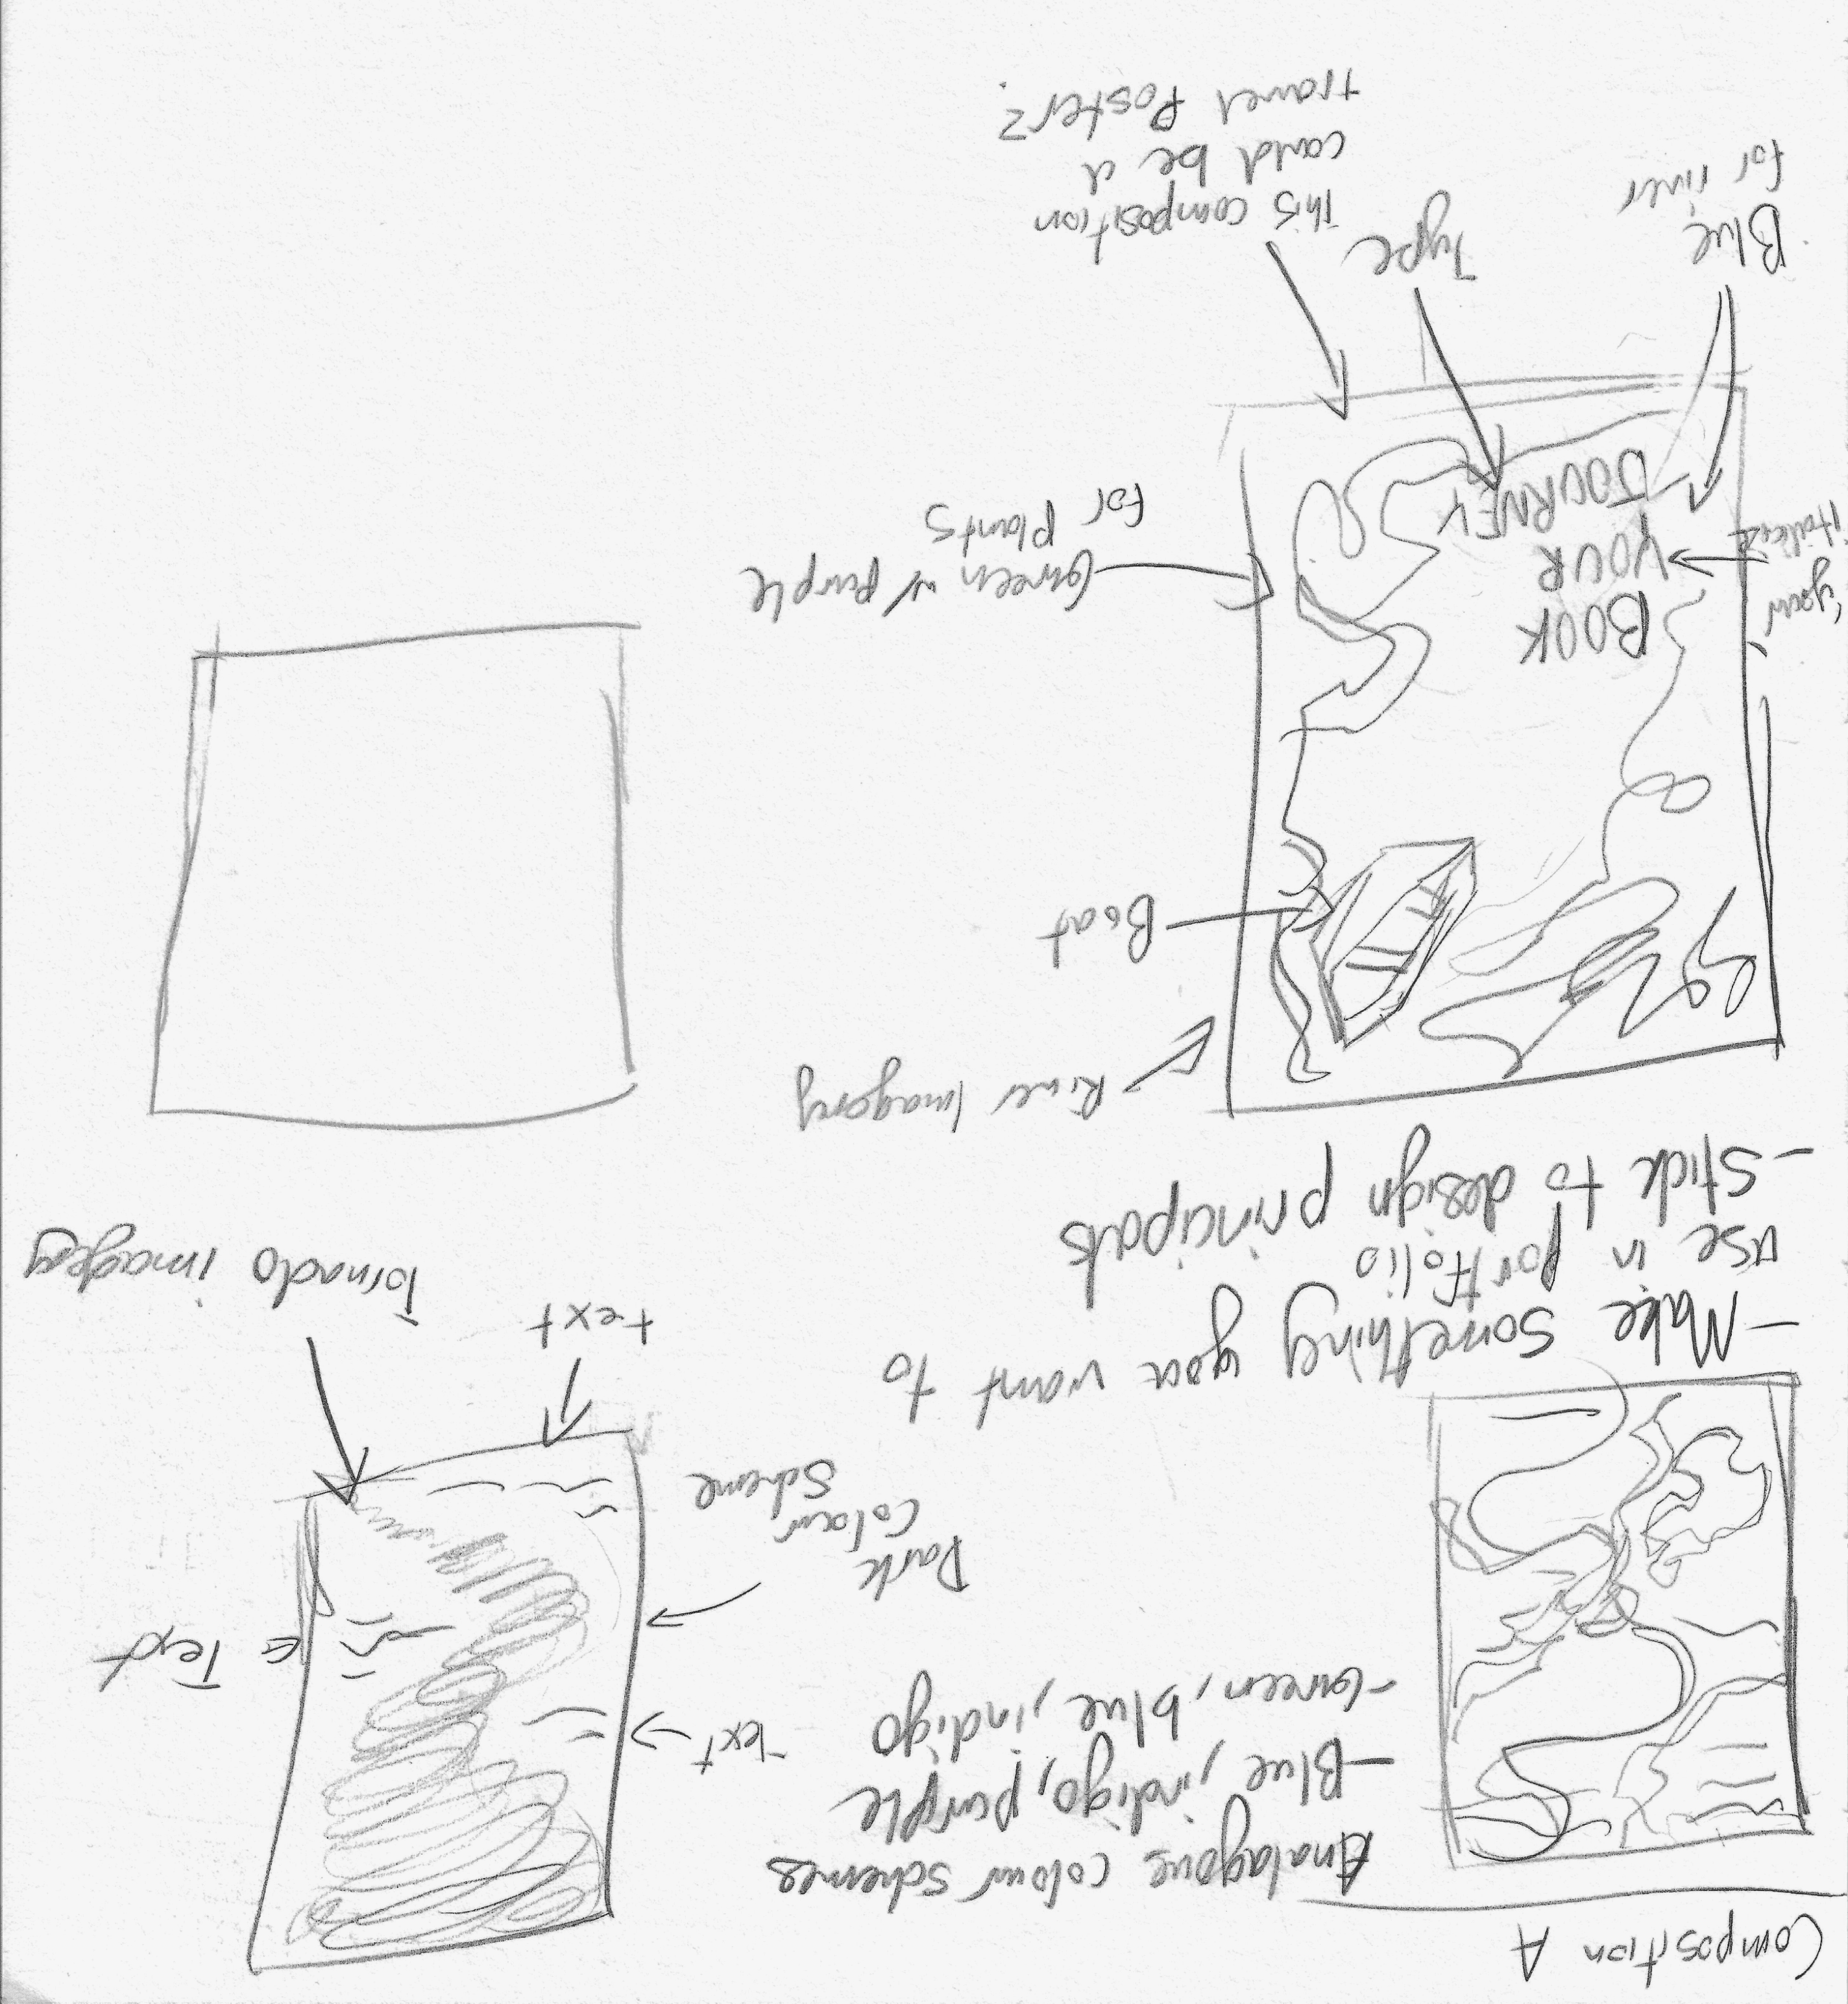 Composition A
Analagous colour schemes
- Blue, indigo, purple
- Green, blue, indigo
Text
Text
Dark
Colour
Scheme
text
Tornado imagery
- Make something you want to
use in portfolio
- Stick to design principals
River Imagery
Boat
BOOK
YOUR
JOURNEY
"your
italics?
Green w/ purple
for plants
Blue
for river
Type
This composition
could be a
travel Poster?